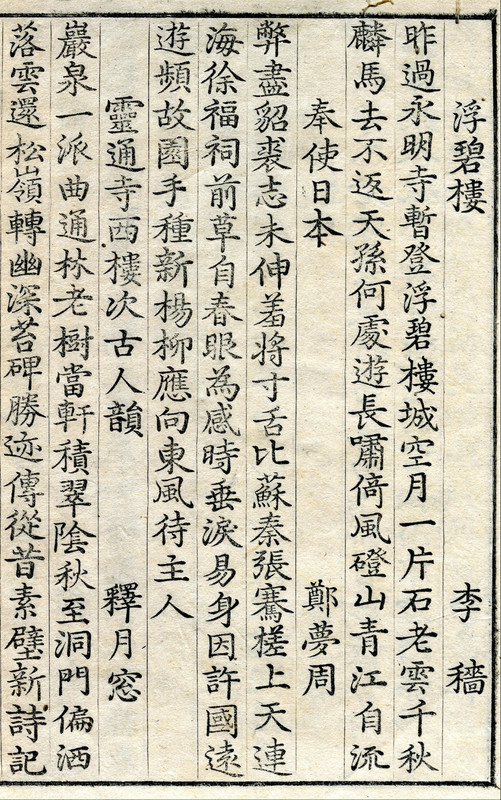 浮碧樓 李穡
昨過永明寺暫登浮碧樓城空月一片石老雲千秋
麟馬去不返天孫何處遊長嘯倚風磴山青江自流
奉使日本 鄭夢周
弊盡貂裘志未伸羞將寸舌比蘇秦張騫槎上天連
海徐福祠前草自春眼為感時垂淚易身因許國遠
遊頻故園手種新楊柳應向東風待主人
靈通寺西樓次古人韻 釋月窓
巖泉一派曲通林老樹當軒積翠陰秋至洞門偏洒
落雲還松嶺轉幽深苔碑勝迹傳從昔素壁新詩記